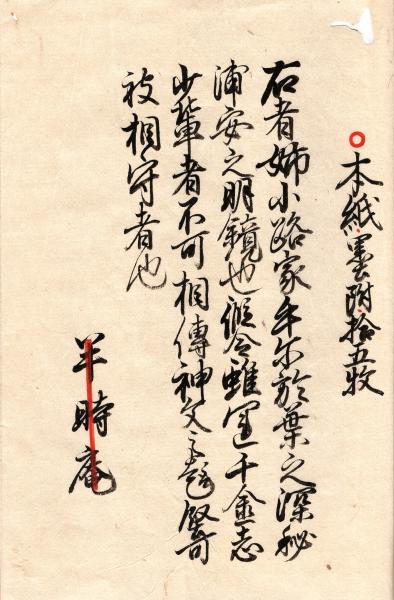 本紙墨附拾五枚
右者姉小路家手尓於葉之深秘
浦安之明鏡也假令雖運千金志
少輩者不可相傳神文之趣堅可
被相守者也
半時庵